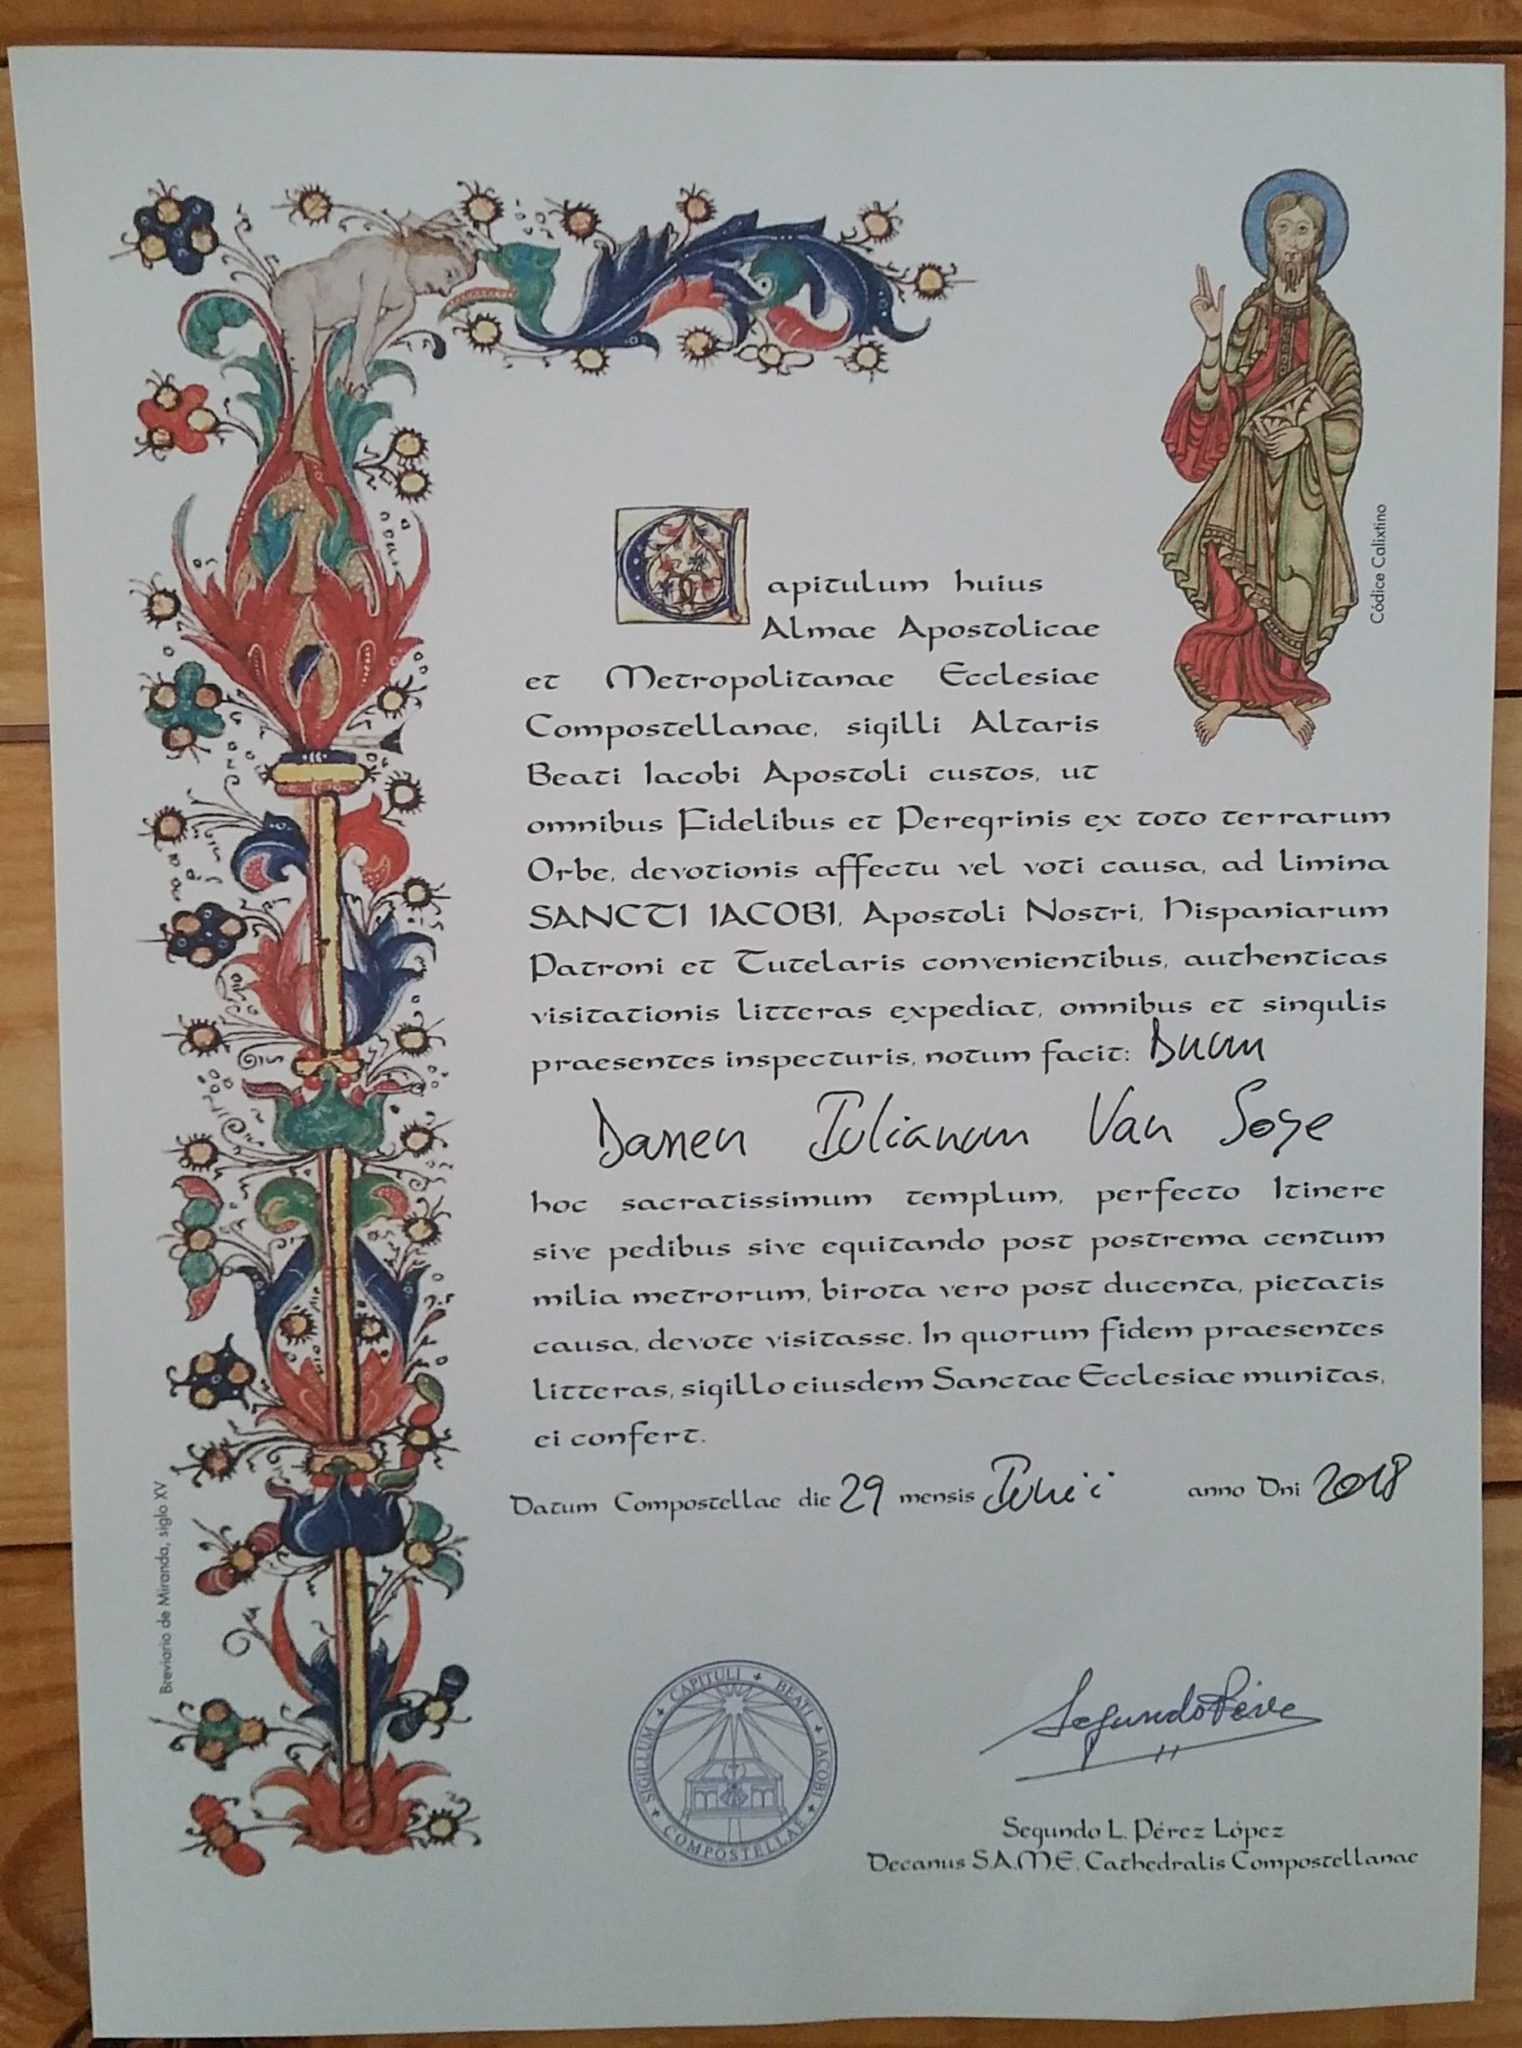 Capitulum huius
Almae Apostolicae
et Metropolitanae Ecclesiae
Compostellanae, sigilli Altaris
Beati Iacobi Apostoli custos, ut
omnibus Fidelibus et Peregrinis ex toto terrarum
Orbe, devotionis affectu vel voti causa, ad limina
SANCTI IACOBI, Apostoli Nostri, Hispaniarum
Patroni et Tutelaris convenientibus, authenticas
visitationis litteras expediat, omnibus et singulis
praesentes inspecturis, notum facit: Dnum
Darren Iulianum Van
hoc sacratissimum templum, perfecto Itinere
sive pedibus sive equitando post postrema centum
milia metrorum, birota vero post ducenta, pietatis
causa, devote visitasse. In quorum fidem praesentes
litteras, sigillo eiusdem Sanctae Ecclesiae munitas,
ei confert.
Datum Compostellae die 29 mensis anno Dni 2018
Segundo L. Pérez López
Decanus S.A.M.E. Cathedralis Compostellanae
SIGILLUM CAPITULI BEATI JACOBI COMPOSTELLAE
Segundo Pérez
Códice Calixtino
Breviario de Miranda, siglo XV